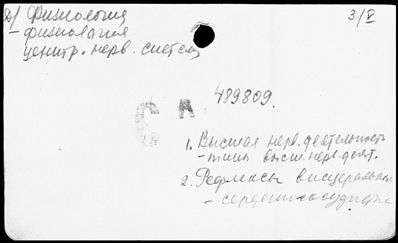 д/ Физиология 3/V
– физиология
центр. нерв. систем
489809.
С А
1. Высшая нерв. деятельность
– типы высш. нерв. деят.
2. Рефлексы висцеральные
– сердечнососудистые